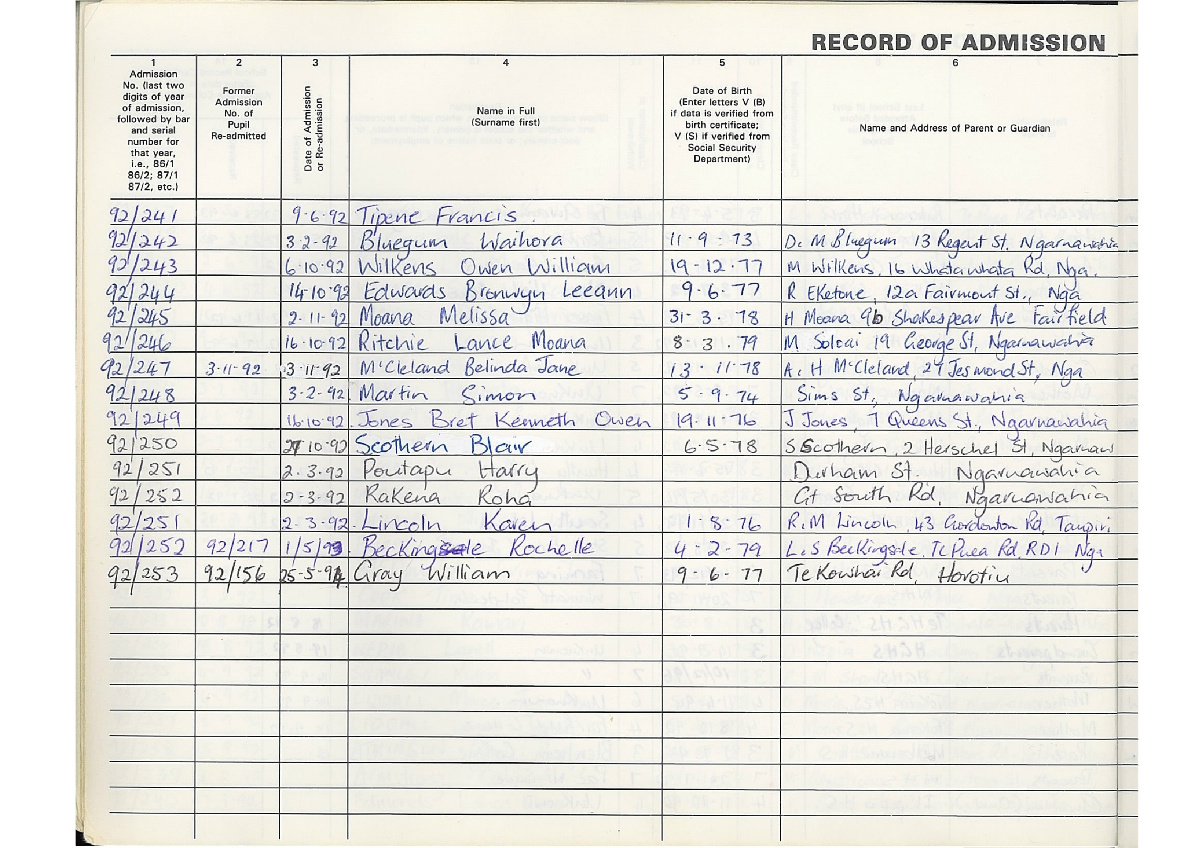 RECORD OF ADMISSION
1 2 3 4 5 6
Admission No. (last two digits of year of admission, followed by bar and serial number for that year, i.e., 86/1 86/2; 87/1 87/2, etc.)
Former Admission No. of Pupil Re-admitted
Date of Admission or Re-admission
Name in Full (Surname first)
Date of Birth (Enter letters V (B) if data is verified from birth certificate; V (S) if verified from Social Security Department)
Name and Address of Parent or Guardian
92/241 9·6·92 Tipene Francis
92/242 3·2·92 Bluegum Waihora 11·9·73 D. M Bluegum 13 Regent St, Ngaruawahia
92/243 6·10·92 Wilkens Owen William 19·12·77 M Wilkens, 16 Whatawhata Rd, Nga.
92/244 14·10·92 Edwards Bronwyn Leeann 9·6·77 R Eketone, 12a Fairmont St., Nga
92/245 2·11·92 Moana Melissa 31·3·78 H Moana 9b Shakespear Ave Fairfield
92/246 16·10·92 Ritchie Lance Moana 8·3·79 M 19 George St, Ngaruawahia
92/247 3·11·92 3·11·92 McCleland Belinda Jane 13·11·78 A. H McCleland, 29 Jesmond St, Nga
92/248 3·2·92 Martin Simon 5·9·74 Sims St, Ngaruawahia
92/249 16·10·92 Jones Bret Kenneth Owen 19·11·76 J Jones, 7 Queens St., Ngaruawahia
92/250 27 10·92 Scothern Blair 6·5·78 S Scothern, 2 Herschel St, Ngaruaw
92/251 2·3·92 Poutapu Harry Durham St. Ngaruawahia
92/252 2·3·92 Rakena Roha Gt South Rd, Ngaruawahia
92/251 2·3·92 Lincoln Karen 1·8·76 R. M Lincoln, 43 Gordonton Rd, Taupiri
92/252 92/217 1/5/93 Beckingsale Rochelle 4·2·79 L. S Beckingsale, Te Puea Rd, RD1 Nga
92/253 92/156 25-5-94 Gray William 9·6·77 Te Kowhai Rd, Horotiu